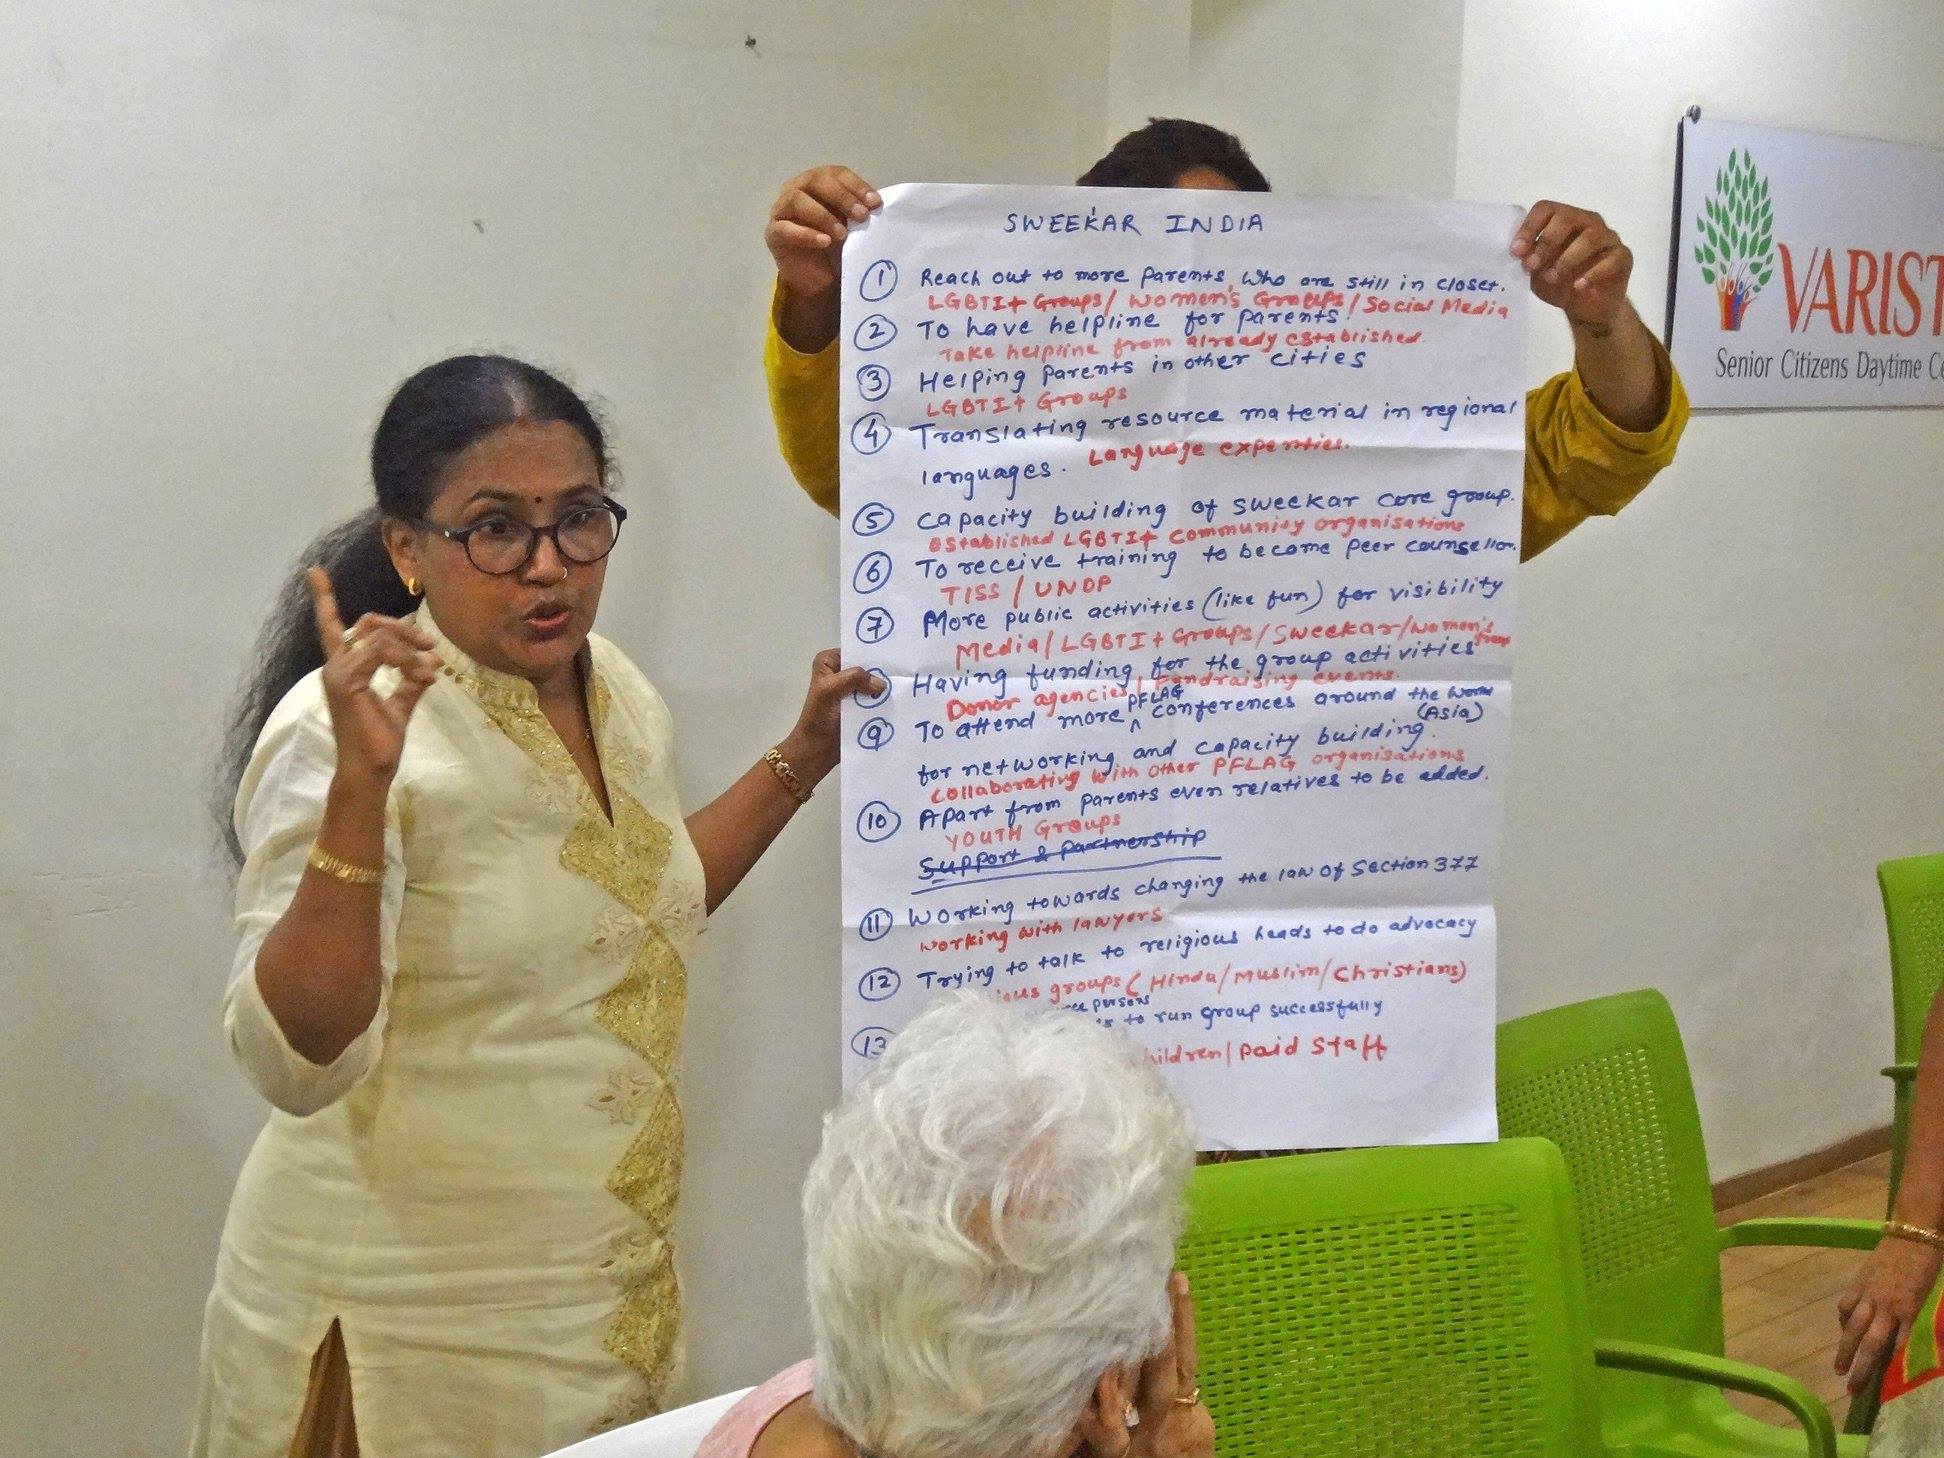 SWEEKAR INDIA
1 Reach out to more parents, who are still in closet.
LGBTI+ Groups/ Women's Groups/Social Media
2 To have helpline for parents.
Take helpline from already established.
3 Helping parents in other cities
LGBTI+ Groups
4 Translating resource material in regional
languages. Language experties.
5 capacity building of sweekar core group.
Established LGBTI+ community organisations
6 To receive training to become peer counsellor.
TISS / UNDP
7 More public activities (like fun) for visibility
Media/LGBTI+ Groups/Sweekar/Women's
Having funding for the group activities
Donor agencies/ Fundraising events.
9 To attend more PFLAG conferences around the world
(Asia)
for networking and capacity building.
collaborating with other PFLAG organisations
10 Apart from parents even relatives to be added.
YOUTH Groups
Support & partnership
11 Working towards changing the law of Section 377
working with lawyers
12 Trying to talk to religious heads to do advocacy
groups (Hindu/Muslim/Christians)
persons
13 to run group successfully
/Paid Staff
VARIST
Senior Citizens Daytime